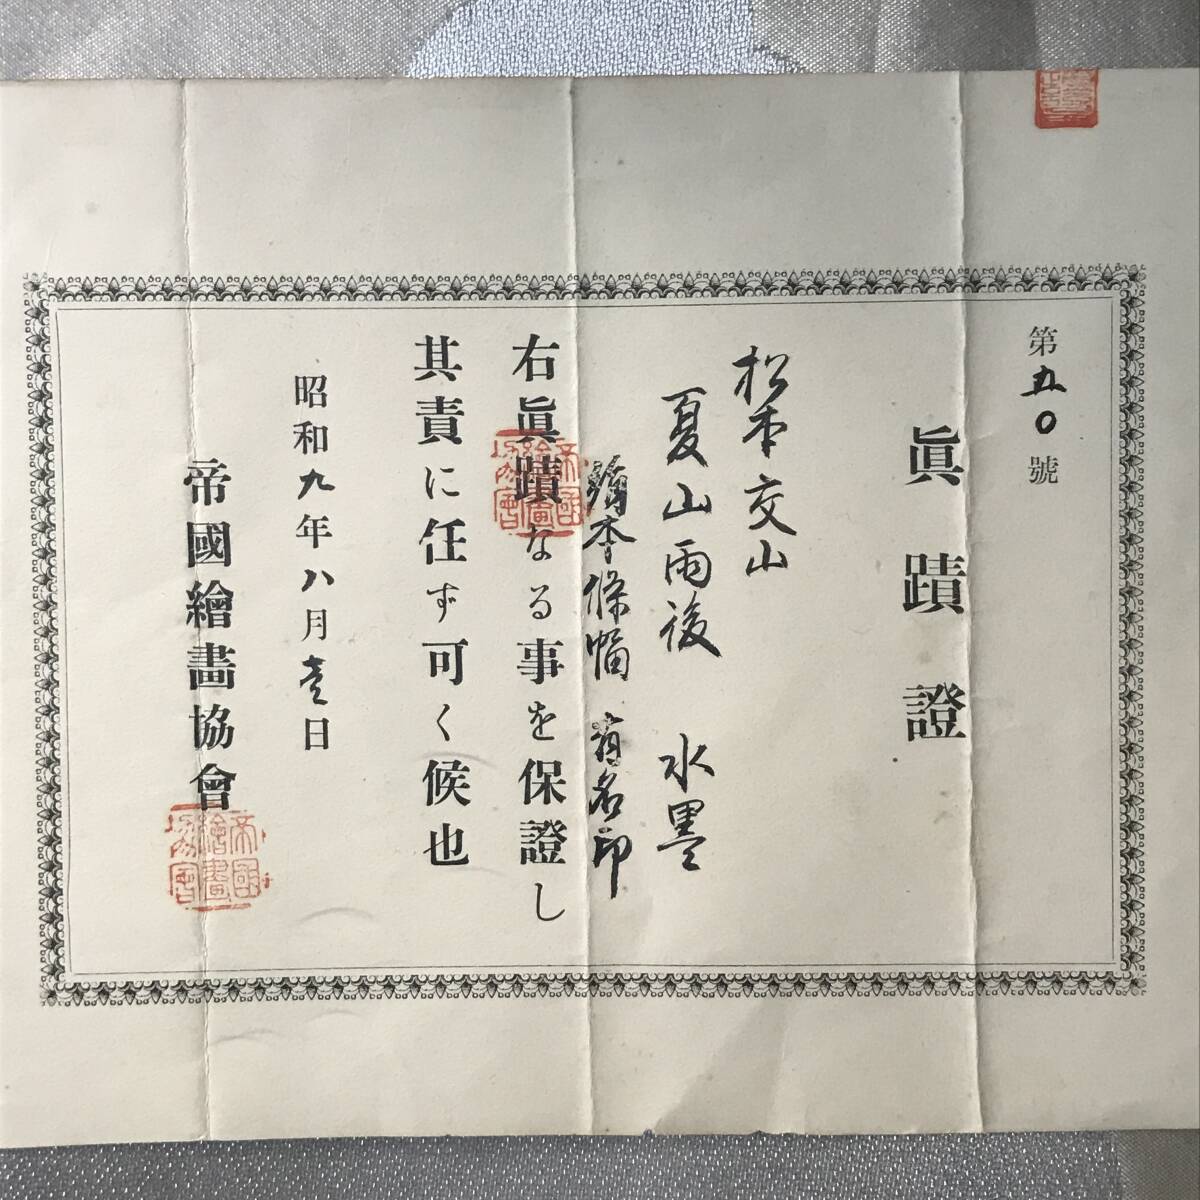 第五〇號
眞蹟證
松本交山
夏山雨後 水墨
絹本條幅 有名印
右眞蹟なる事を保證し
其責に任ず可く候也
昭和九年八月壱日
帝國繪畫協會
帝國繪畫協會
帝國繪畫協會